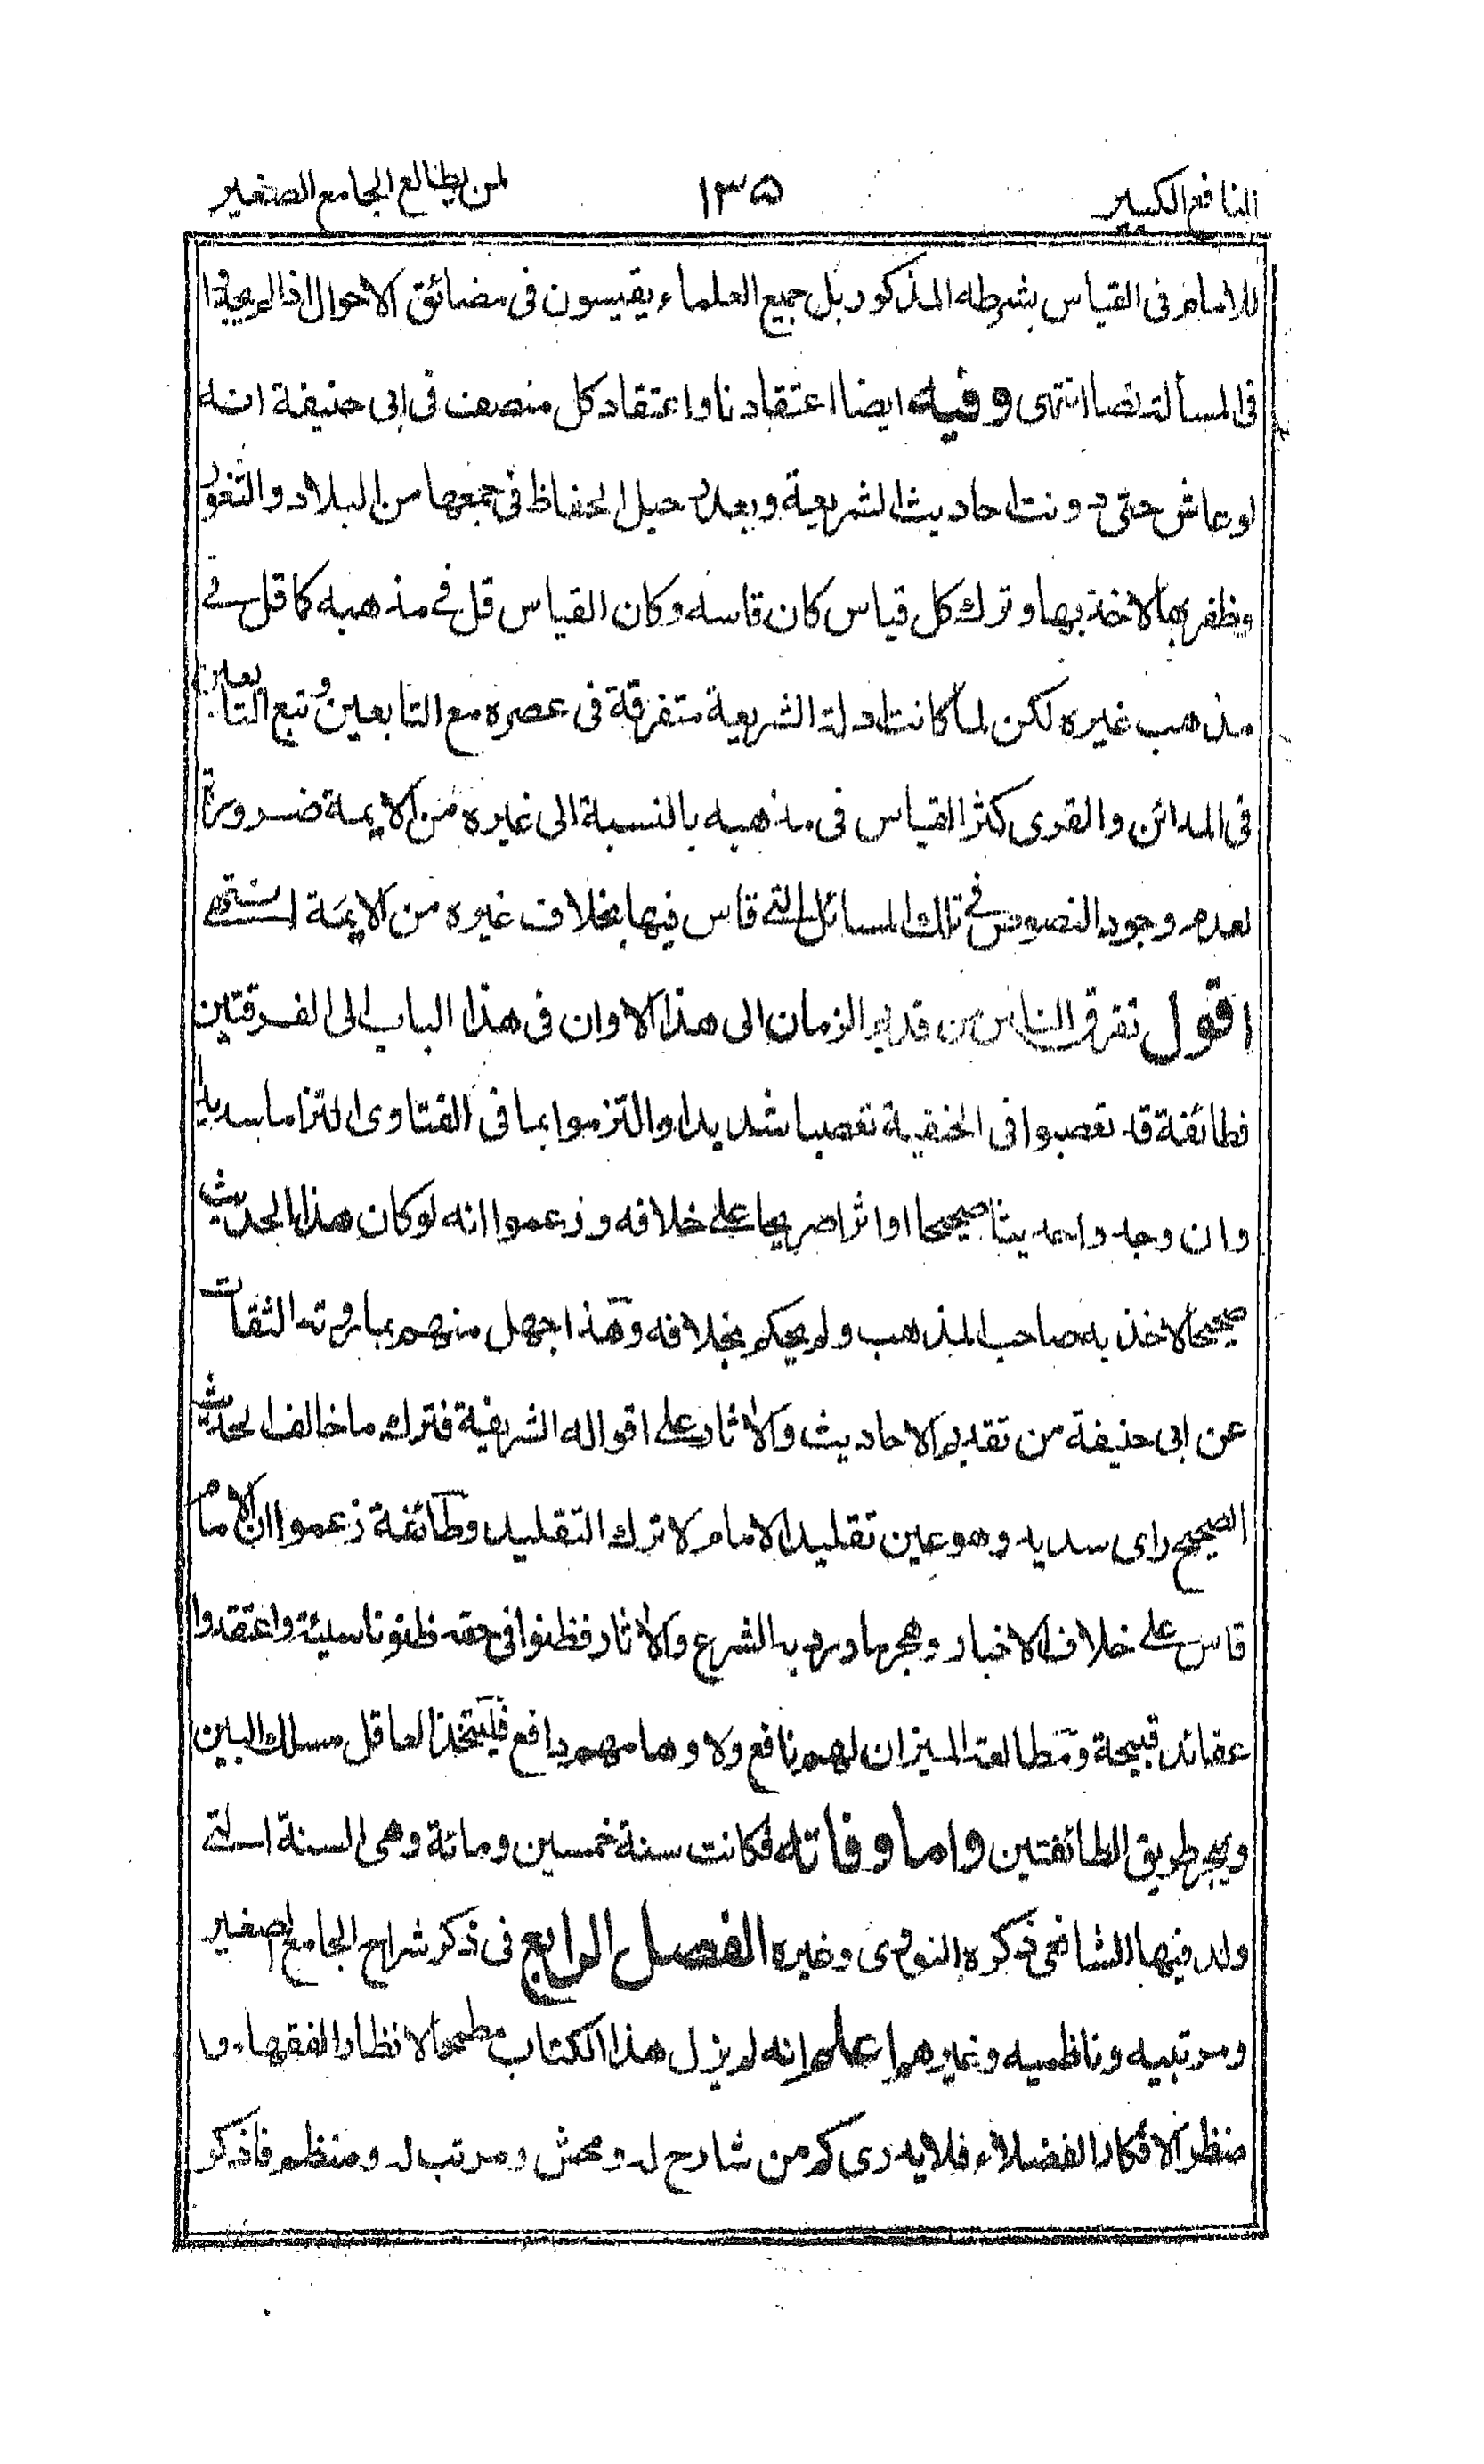 النافع الكبير ۱۳۵ لمن يطالع الجامع الصغير
للامام فى القياس بشرطه المذكور بل جميع العلماء يقيسون فى مضائق الاحوال اذا لم يجدوا
فى المسألة نصا انتهى وفيه ايضا اعتقادنا واعتقاد كل منصف فى ابى حنيفة انه
لو عاش حتى دونت احاديث الشريعة وبعد رحيل الحفاظ فى جمعها من البلاد والثغور
وظفر بها لاخذ بها وترك كل قياس كان قاسه وكان القياس قل فى مذهبه كما قل فى
مذهب غيره لكن لما كانت ادلة الشريعة متفرقة فى عصره مع التابعين وتبع التابعين
فى المدائن والقوى كثر القياس فى مذهبه بالنسبة الى غيره من الايمة ضرورة
لعدم وجود النصوص فى تلك المسائل التى قاس فيها بخلاف غيره من الايمة انتهى
اقول تفرق الناس من قديم الزمان الى هذا الاوان فى هذا الباب الى الفرقتين
فطائفة قد تعصبوا فى الحنفية تعصبا شديدا والتزموا بما فى الفتاوى التزاما سديدا
وان وجدوا حديثا صحيحا او اثرا صريحا على خلافه وزعموا انه لو كان هذا الحديث
صحيحا لاخذ به صاحب المذهب ولم يحكم بخلافه وهذا جهل منهم بما روته الثقات
عن ابى حنيفة من تقديم الاحاديث والاثار على اقواله الشريفة فترك ما خالف الحديث
الصحيح راى سديد وهو عين تقليد الامام لا ترك التقليد وطائفة زعموا ان الامام
قاس على خلاف الاخبار وهجر ما ورد به الشرع والاثار فظنوا فى حقه ظنونا سيئة واعتقدوا
عقائد قبيحة ومطالعة الميزان لهم نافع ولاوهامهم دافع فليتخذ العاقل مسلك البين
ويهجر طريق الطائفتين واما وفاته فكانت سنة خمسين ومائة وهى السنة التى
ولد فيها الشافعى ذكره النووى وغيره الفصل الرابع فى ذكر شراح الجامع الصغير
ومرتبيه وناظميه وغيرهم اعلم انه لم يزل هذا الكتاب مطمحا لانظار الفقهاء و
منظرا لافكار الفضلاء فلا يدرى كم من شارح له ومحش ومرتب له ومنظم فاذكر